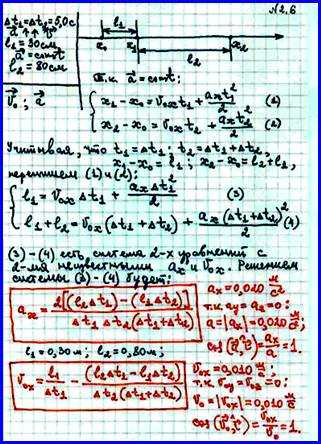 N2.6
Δt₁=Δt₂=5,0с
l₁=30см
a⃗=const
l₂=80см
v⃗₀; a⃗
l₁
x₀ x₁ x₂
l₂
Т.к. a⃗=const:
x₁-x₀=v₀ₓt₁+aₓt₁²/2 (1)
x₂-x₀=v₀ₓt₂+aₓt₂²/2 (2)
Учитывая, что t₁=Δt₁; t₂=Δt₁+Δt₂,
x₁-x₀=l₁; x₂-x₀=l₂+l₁,
перепишем (1) и (2):
l₁=v₀ₓΔt₁+aₓΔt₁²/2 (3)
l₁+l₂=v₀ₓ(Δt₁+Δt₂)+aₓ(Δt₁+Δt₂)²/2 (4)
(3)-(4) есть система 2-х уравнений с
2-мя неизвестными aₓ и v₀ₓ. Решением
системы (3)-(4) будет:
aₓ=2[(l₂Δt₁)-(l₁Δt₂)]/Δt₁Δt₂(Δt₁+Δt₂)
aₓ=0,020 м/с²
т.к. aᵧ=a_z=0:
a=|aₓ|=0,020 м/с²
cos(a⃗,^x⃗)=aₓ/a=1.
l₁=0,30м; l₂=0,80м;
v₀ₓ=l₁/Δt₁-(l₂Δt₁-l₁Δt₂)/Δt₂(Δt₁+Δt₂)
v₀ₓ=0,010 м/с;
т.к. v₀ᵧ=v₀_z=0:
v₀=|v₀ₓ|=0,010 м/с;
cos(v⃗₀,^x⃗)=v₀ₓ/v₀=1.